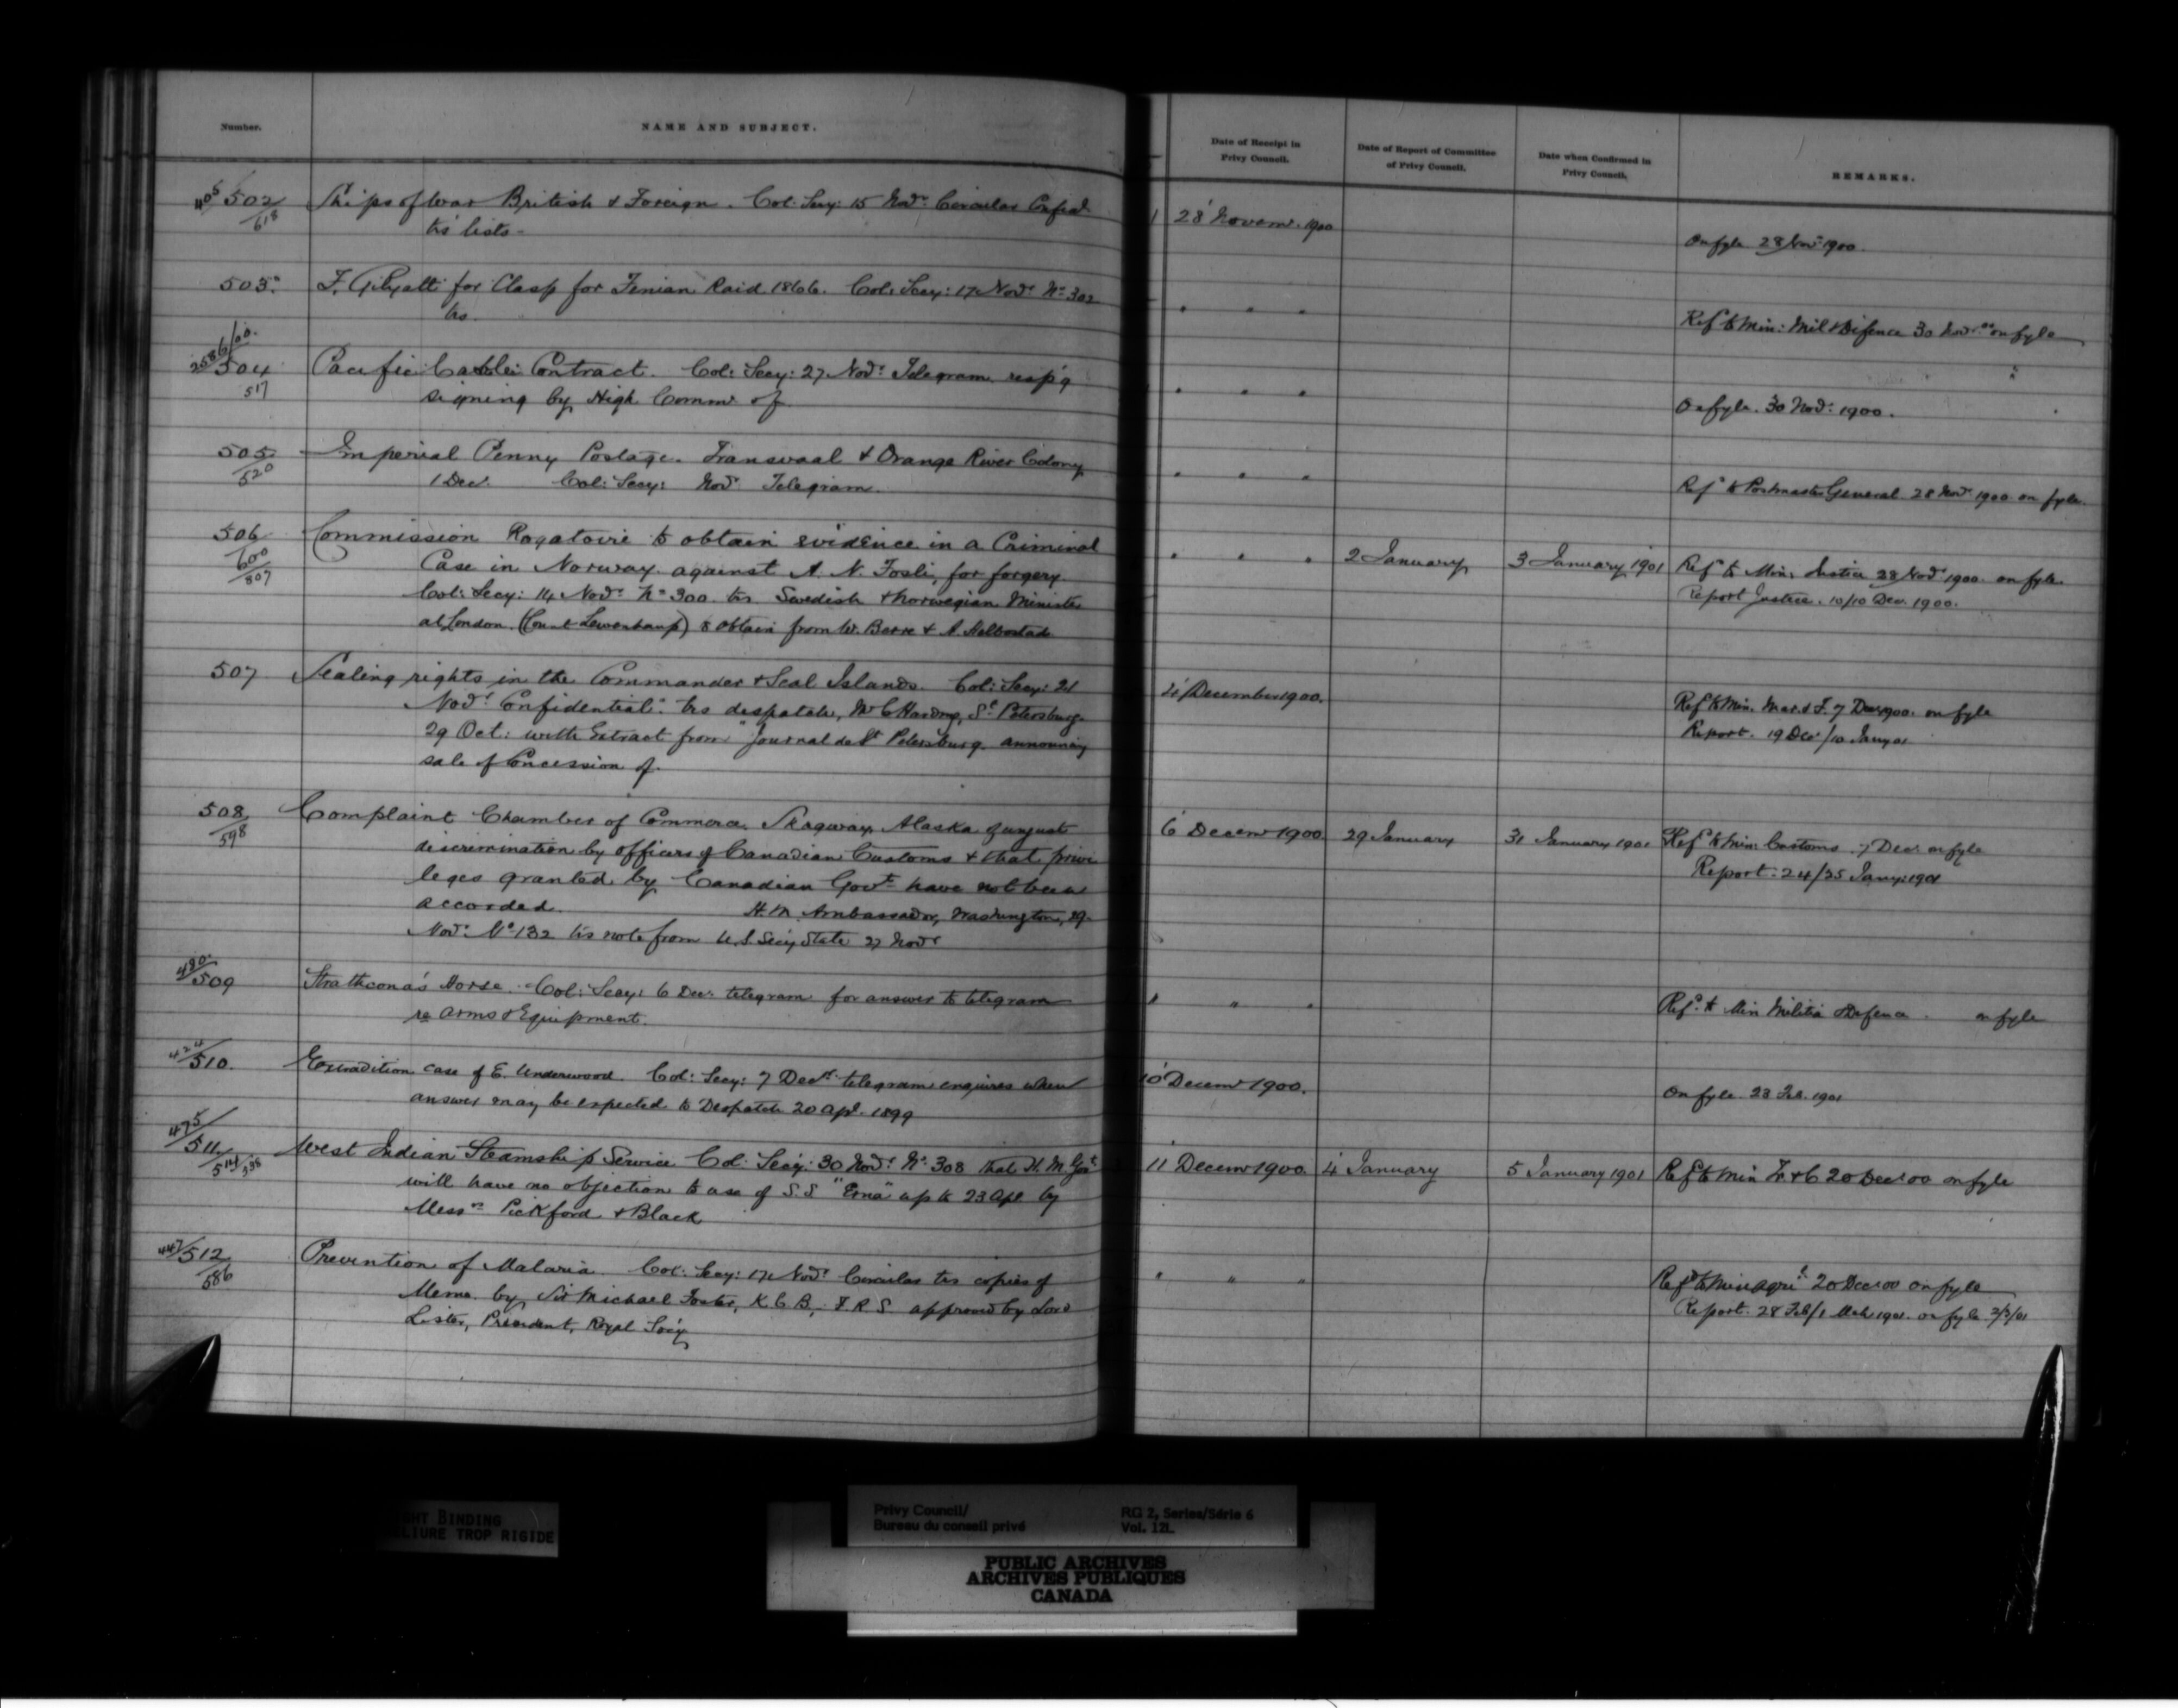 Number.
NAME AND SUBJECT.
Date of Receipt in
Privy Council.
Date of Report of Committee
of Privy Council.
Date when Confirmed in
Privy Council.
REMARKS.
405/502/618
Ships of War British & Foreign. Col: Secy: 15 Novr Circular Confid
trs lists -
28 Novemr. 1900
On fyle 28 Novr 1900.
503.
F. for Clasp for Fenian Raid 1866. Col: Secy: 17 Novr No 302
trs.
" " "
Refd to Min: Mil & Defence 30 Novr 00 on fyle
2586/00.
504/517
Pacific Cable Contract. Col: Secy: 27 Novr Telegram resp'g
signing by High Commr of
" " "
On fyle. 30 Novr: 1900.
505/520
Imperial Penny Postage. Transvaal & Orange River Colony
1 Decr. Col: Secy: Novr Telegram.
" " "
Refd to Postmaster General 28 Novr 1900 on fyle.
506/600/807
Commission Rogatoire to obtain evidence in a Criminal
Case in Norway against A. N. Fosli, for forgery.
Col: Secy: 14 Novr No 300 trs Swedish & Norwegian Minister
at London (Count Lewenhaupt) to obtain from W. Berre & A.
" " "
2 January
3 January 1901
Refd to Min: Justice 28 Novr 1900. on fyle
Report Justice. 10/10 Dec. 1900.
507
Sealing rights in the Commander & Seal Islands. Col: Secy: 21
Novr Confidential: trs despatch, Mr C Harding, St Petersburg
29 Oct: with Extract from "Journal de St Petersburg announcing
sale of Concession of.
December 1900.
Refd to Min. Mar & F. 7 Decr 1900. on fyle
Report. 19 Decr/10 Jany 01
508/598
Complaint Chamber of Commerce Skagway, Alaska of unjust
discrimination by officers of Canadian Customs & that privi
leges granted by Canadian Govt have not been
accorded. H.M. Ambassador, Washington, 29
Novr No 132 trs note from U.S. Secy State 27 Novr
6 Decemr 1900.
29 January
31 January 1901
Refd to Min: Customs 7 Decr on fyle
Report: 24/25 Jany: 1901
490/509
Strathcona's Horse. Col: Secy: 6 Decr: telegram for answer to telegram
re arms & Equipment.
" " "
Refd to Min Militia & Defence. on fyle
424/510.
Extradition case of E. Underwood. Col: Secy: 7 Decr telegram enquires when
answer may be expected to Despatch 20 Apl. 1899
10 Decemr 1900.
On fyle 23 Feb. 1901
475/511/514/538
West Indian Steamship Service Col: Secy: 30 Novr No 308 that H.M. Govt
will have no objection to use of S.S. "Erna" up to 23 Apl by
Messrs Pickford & Black
11 Decemr 1900.
4 January
5 January 1901
Refd to Min Tr & C 20 Decr 00 on fyle
447/512/586
Prevention of Malaria. Col: Secy: 17 Novr Circular trs copies of
Memo. by Sir Michael Foster, K.C.B., F.R.S. approved by Lord
Lister, President, Royal Socy
" " "
Refd to Min Agri 20 Decr 00 on fyle
Report. 28 Feb/1 Mch 1901. on fyle 2/3/01
GHT BINDING
LIURE TROP RIGIDE
Privy Council/
Bureau du conseil privé
RG 2, Series/Série 6
Vol. 121.
PUBLIC ARCHIVES
ARCHIVES PUBLIQUES
CANADA